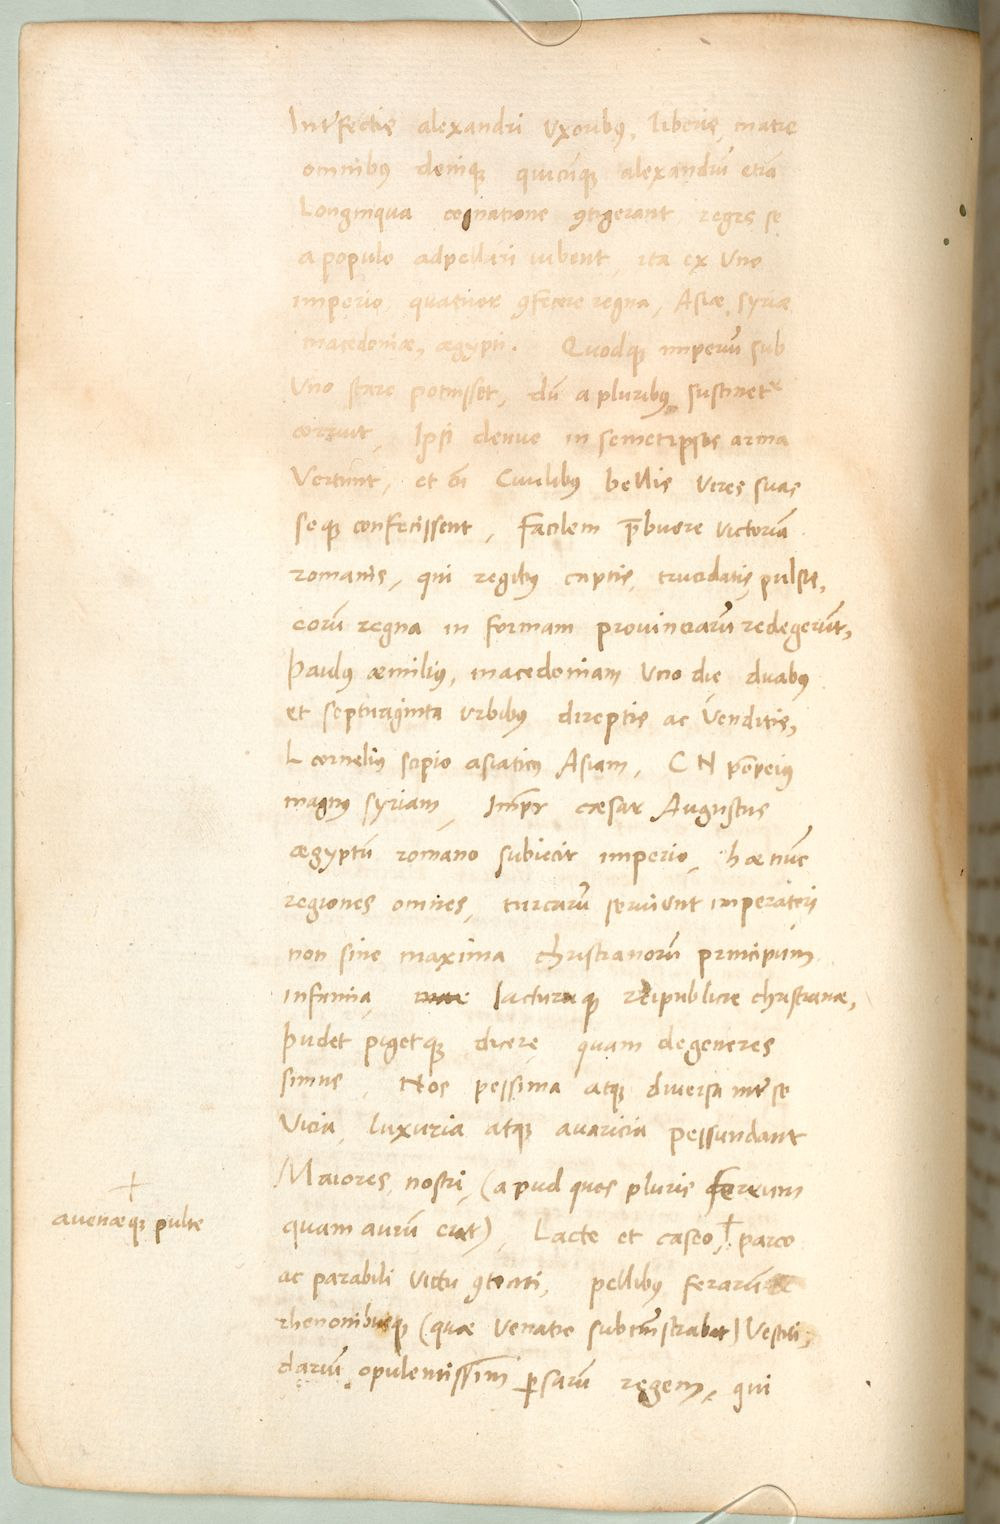 Interfectis alexandri uxoribus, liberis, matre
omnibus deniq; quicūq; alexandrū etiā
Longinqua cognatione 9tigerant, reges se
a populo adpellari iubent, ita ex Uno
imperio quatuor 9fecere regna, Asiæ, syriæ
macedoniæ, ægypti. Quodq; imperiū sub
Uno stare potuisset, dū a pluribus sustinet
corruit, Ipsi denuo in semetipsos arma
Vertunt, et ōi Ciuilibus bellis Vires suas
seq; confecissent, facilem p̄buere victoriā
romanis, qui regibus captis, trucidatis pulsis,
eorū regna in formam prouinciarū redegerūt,
Paulus æmilius, macedoniam Uno die duabus
et septuaginta urbibus direptis ac Venditis,
L cornelius scipio asiaticus Asiam, CN pōpeius
magnus syriam, Imp̄r cæsar Augustus
ægyptū romano subiecit imperio, hæ nūc
regiones omnes, turcarū seruiunt imperatori
non sine maxima christianorū principum
infamia, iacturaq; reipublicæ christianæ,
Pudet pigetq; dicere quam degeneres
simus, Nos pessima atq; diuersa inter se
Vicia, luxuria atq; auaricia pessundant
Maiores nostri, (apud quos pluris ferrum
quam aurū erat), Lacte et caseo, + parco
ac parabili victu 9tenti, pellibus ferarū
rhenonibusq; (quæ Venatio submīstrabat) Vestiti,
dariū opulentissim̄ persarū regem, qui
+
auenæq; pulte